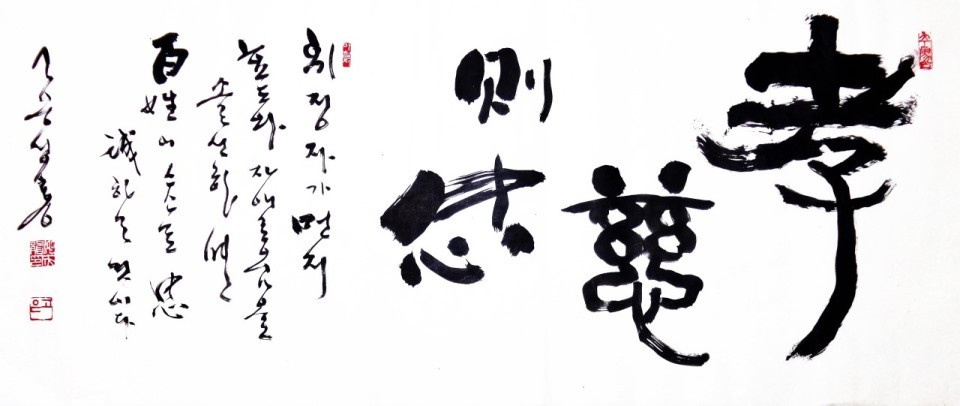 孝慈
則忠
위정자가 먼저
효도와 자애로움을
솔선하면
百姓이 스스로 忠
誠하는 것이다